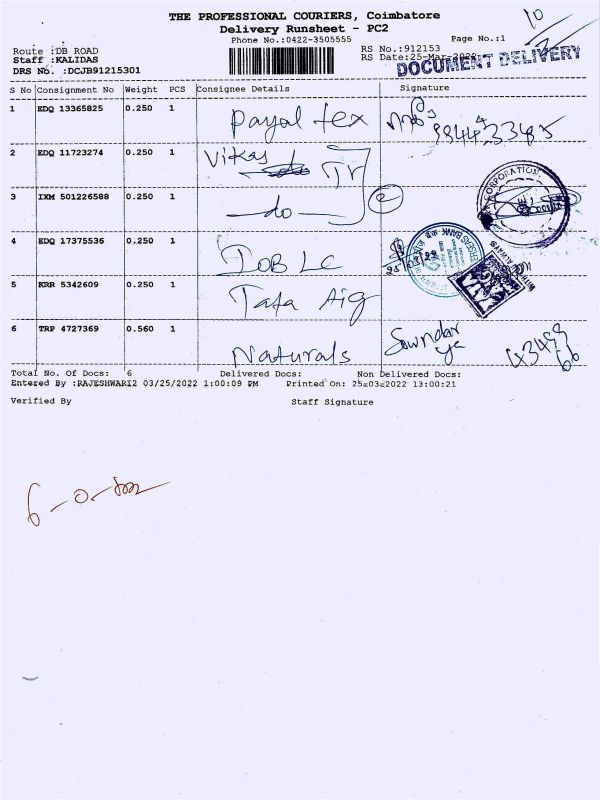 THE PROFESSIONAL COURIERS, Coimbatore
Delivery Runsheet - PC2
10
Phone No.:0422-3505555
Page No.:1
Route :DB ROAD
RS No.:912153
Staff :KALIDAS
RS Date:25-Mar-2022
DOCUMENT DELIVERY
DRS No. :DCJB91215301
S No Consignment No Weight PCS Consignee Details Signature
1 EDQ 13365825 0.250 1 Payal tex
2 EDQ 11723274 0.250 1 Vikas Tr
3 IXM 501226588 0.250 1 —do—
CORPORATION
4 EDQ 17375536 0.250 1 IOB LC
BANK
ALWAYS
5 KRR 5342609 0.250 1 Tata Aig
6 TRP 4727369 0.560 1 Naturals Sowndar
ya
Total No. Of Docs: 6 Delivered Docs: Non Delivered Docs:
Entered By :RAJESHWARI2 03/25/2022 1:00:09 PM Printed On: 25-03-2022 13:00:21
Verified By Staff Signature